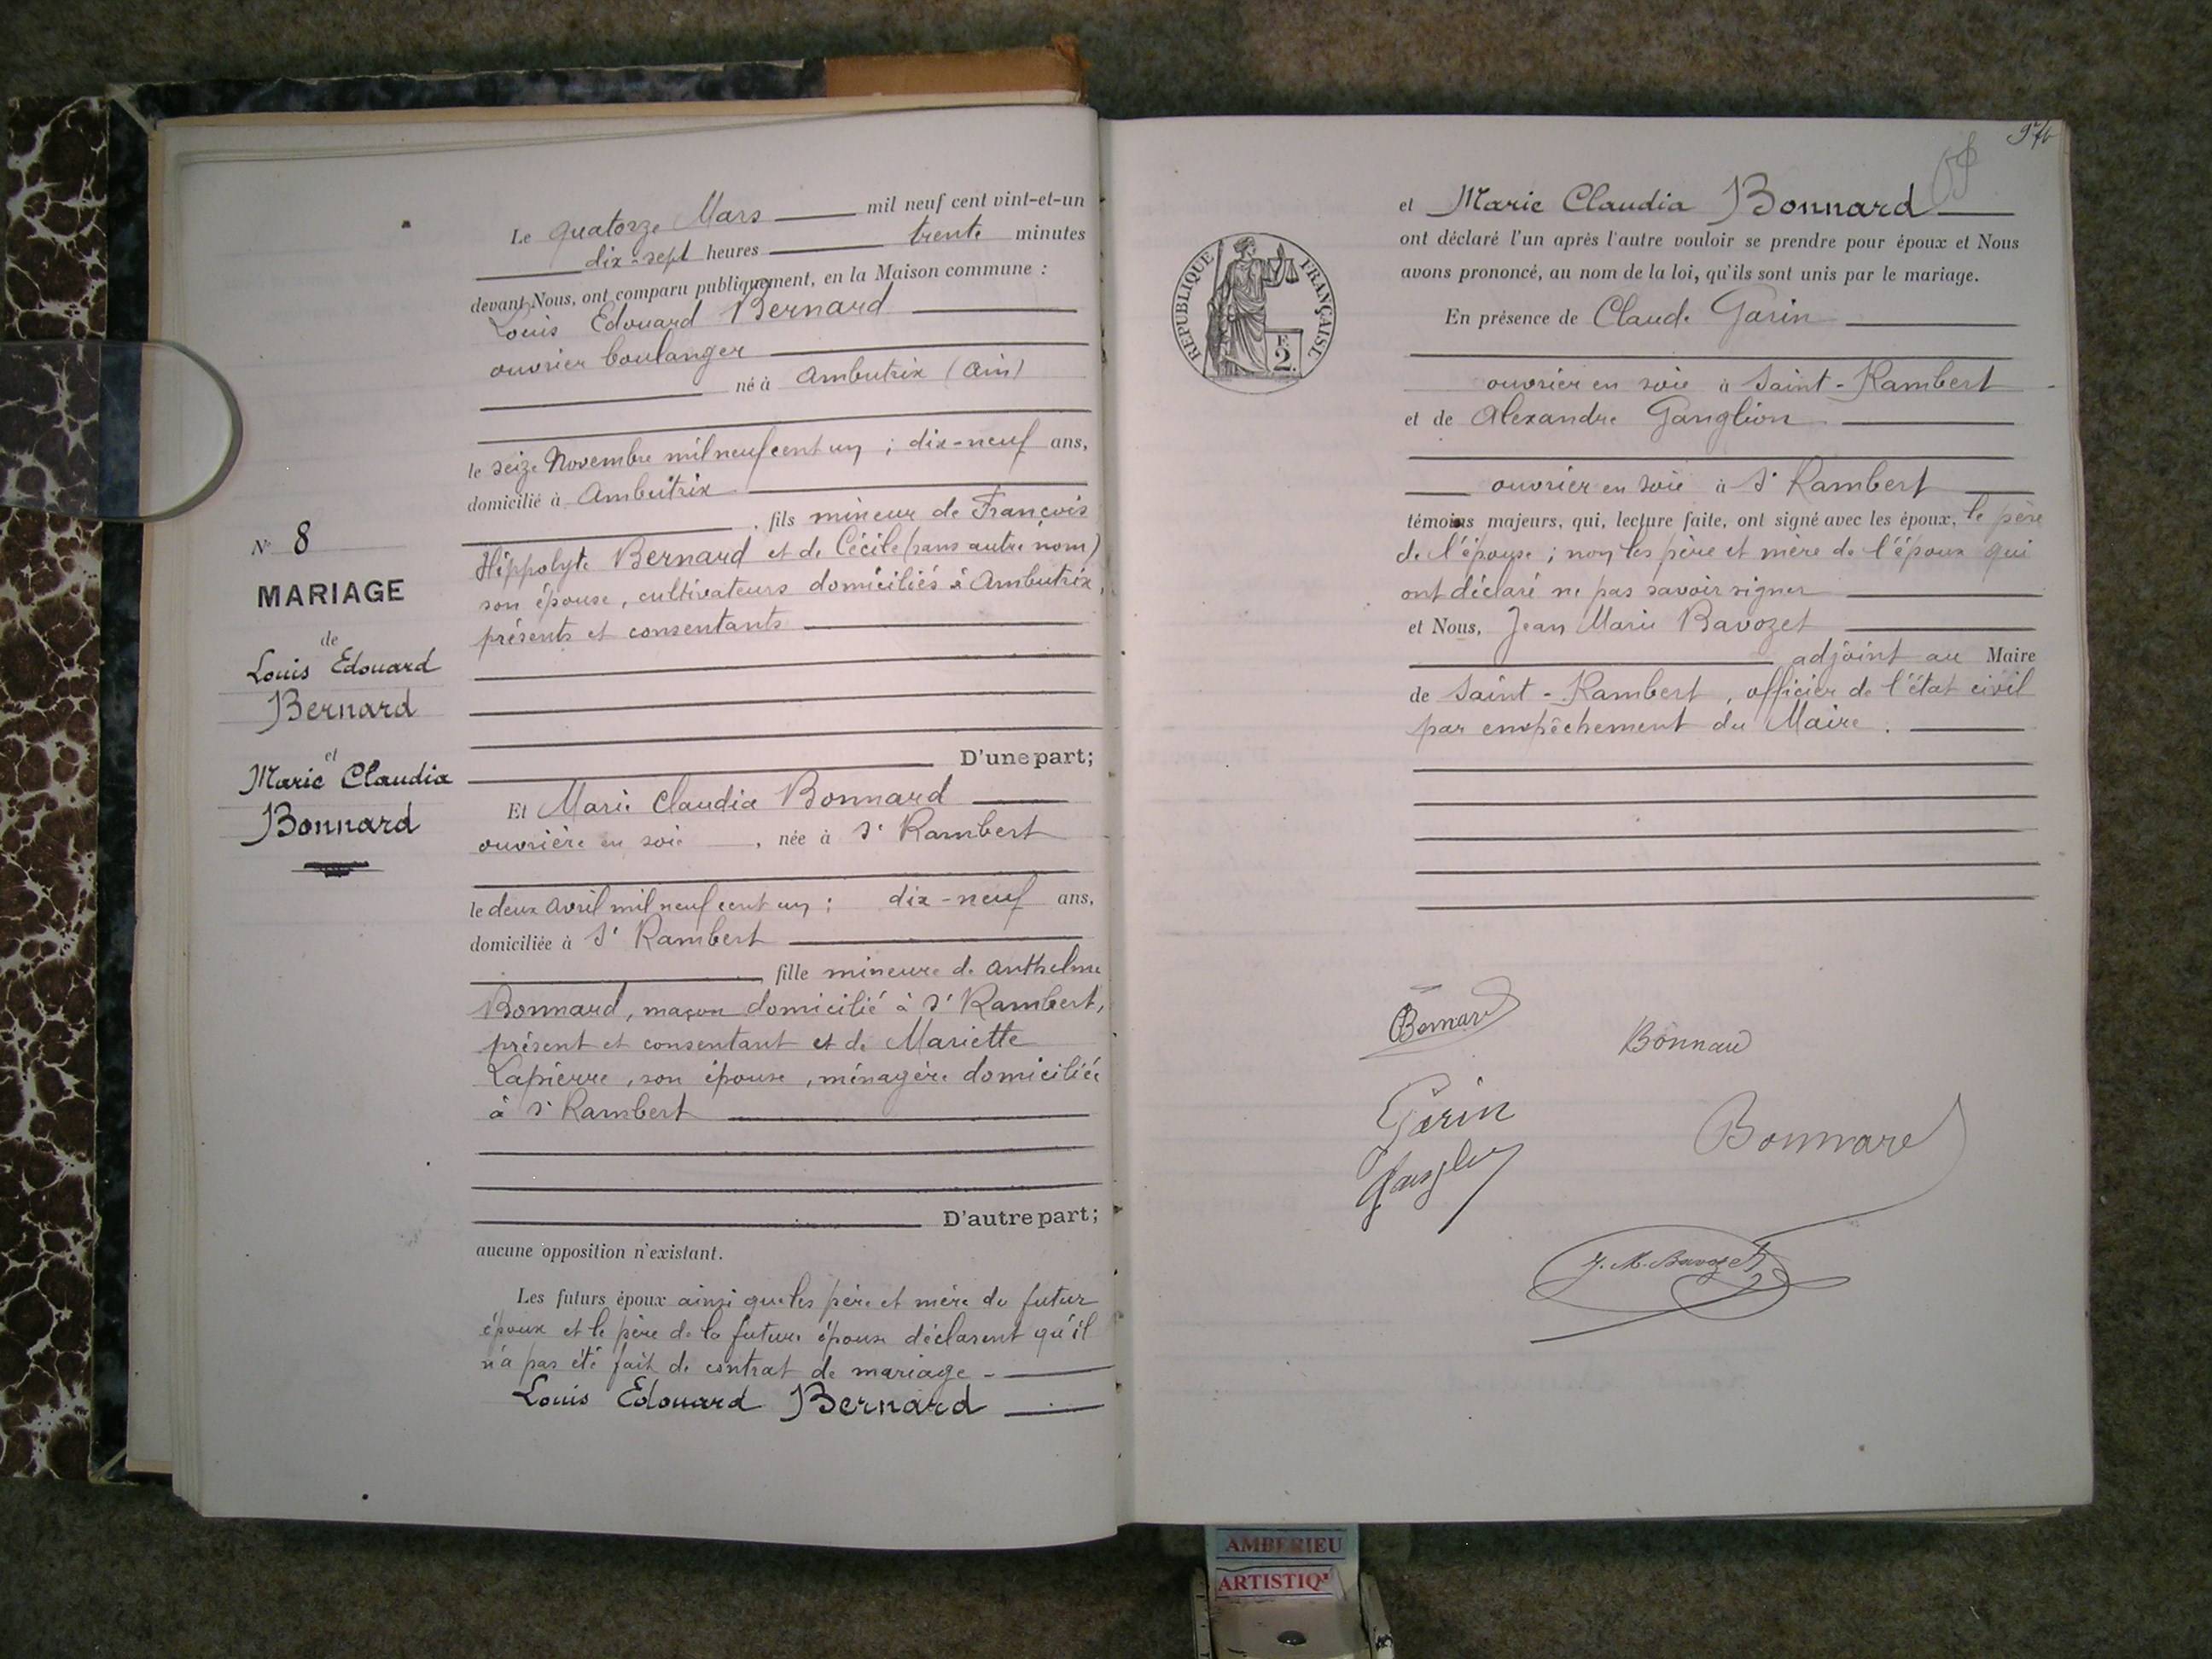 Le quatorze Mars mil neuf cent vint-et-un
dix-sept heures trente minutes
devant Nous, ont comparu publiquement, en la Maison commune :
Louis Edouard Bernard
ouvrier boulanger
né à Ambutrix (Ain)
le seize Novembre mil neuf cent un ; dix-neuf ans,
domicilié à Ambutrix
, fils mineur de François
Hippolyte Bernard et de Cécile (sans autre nom)
son épouse, cultivateurs domiciliés à Ambutrix,
présents et consentants
N° 8
MARIAGE
de
Louis Edouard
Bernard
et
Marie Claudia
Bonnard
D'une part;
Et Marie Claudia Bonnard
ouvrière en soie , née à St Rambert
le deux Avril mil neuf cent un ; dix-neuf ans,
domiciliée à St Rambert
, fille mineure de Anthelme
Bonnard, maçon domicilié à St Rambert,
présent et consentant et de Mariette
Lapierre, son épouse, ménagère domiciliée
à St Rambert
D'autre part;
aucune opposition n'existant.
Les futurs époux ainsi que les père et mère du futur
époux et le père de la future épouse déclarent qu'il
n'a pas été fait de contrat de mariage -
Louis Edouard Bernard
et Marie Claudia Bonnard
ont déclaré l'un après l'autre vouloir se prendre pour époux et Nous
avons prononcé, au nom de la loi, qu'ils sont unis par le mariage.
RÉPUBLIQUE FRANÇAISE
F.
2.
En présence de Claude Garin
ouvrier en soie à Saint-Rambert
et de Alexandre Ganglion
ouvrier en soie à St Rambert
témoins majeurs, qui, lecture faite, ont signé avec les époux, le père
de l'épouse ; non les père et mère de l'époux qui
ont déclaré ne pas savoir signer
et Nous, Jean Marie Ravozet
adjoint au Maire
de Saint-Rambert, officier de l'état civil
par empêchement du Maire.
Bernard
Bonnard
Garin
Bonnard
J. M. Ravozet
AMBERIEU
ARTISTIQ